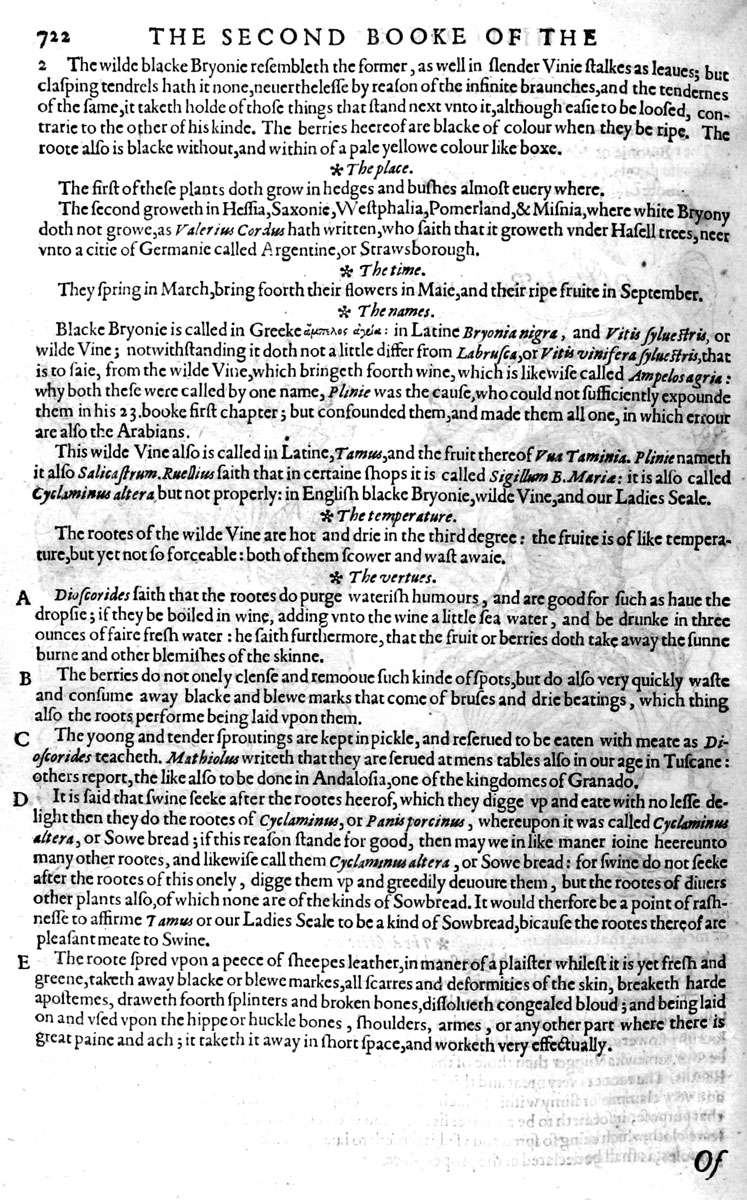 722 THE SECOND BOOKE OF THE
2 The wilde blacke Bryonie reſembleth the former, as well in ſlender Vinie ſtalkes as leaues; but
claſping tendrels hath it none, neuertheleſſe by reaſon of the infinite braunches, and the tendernes
of the ſame, it taketh holde of thoſe things that ſtand next vnto it, although eaſie to be looſed, con-
trarie to the other of his kinde. The berries heereof are blacke of colour when they be ripe. The
roote alſo is blacke without, and within of a pale yellowe colour like boxe.
✻ The place.
The firſt of theſe plants doth grow in hedges and buſhes almoſt euery where.
The ſecond groweth in Heſſia, Saxonie, Weſtphalia, Pomerland, & Miſnia, where white Bryony
doth not growe, as Valerius Cordus hath written, who ſaith that it groweth vnder Haſell trees, neer
vnto a citie of Germanie called Argentine, or Strawsborough.
✻ The time.
They ſpring in March, bring foorth their flowers in Maie, and their ripe fruite in September.
✻ The names.
Blacke Bryonie is called in Greeke ἄμπελος ἀγρία: in Latine Bryonia nigra, and Vitis ſylueſtris, or
wilde Vine; notwithſtanding it doth not a little differ from Labruſca, or Vitis vinifera ſylueſtris, that
is to ſaie, from the wilde Vine, which bringeth foorth wine, which is likewiſe called Ampelos agria:
why both theſe were called by one name, Plinie was the cauſe, who could not ſufficiently expounde
them in his 23. booke firſt chapter; but confounded them, and made them all one, in which errour
are alſo the Arabians.
This wilde Vine alſo is called in Latine, Tamus, and the fruit thereof Vua Taminia. Plinie nameth
it alſo Salicaſtrum. Ruellius ſaith that in certaine ſhops it is called Sigillum B. Mariæ: it is alſo called
Cyclaminus altera, but not properly: in Engliſh blacke Bryonie, wilde Vine, and our Ladies Seale.
✻ The temperature.
The rootes of the wilde Vine are hot and drie in the third degree: the fruite is of like tempera-
ture, but yet not ſo forceable: both of them ſcower and waſt awaie.
✻ The vertues.
A Dioſcorides ſaith that the rootes do purge wateriſh humours, and are good for ſuch as haue the
dropſie; if they be boiled in wine, adding vnto the wine a little ſea water, and be drunke in three
ounces of faire freſh water: he ſaith furthermore, that the fruit or berries doth take away the ſunne
burne and other blemiſhes of the skinne.
B The berries do not onely clenſe and remooue ſuch kinde of ſpots, but do alſo very quickly waſte
and conſume away blacke and blewe marks that come of bruſes and drie beatings, which thing
alſo the roots performe being laid vpon them.
C The yoong and tender ſproutings are kept in pickle, and reſerued to be eaten with meate as Di-
oſcorides teacheth. Mathiolus writeth that they are ſerued at mens tables alſo in our age in Tuſcane:
others report, the like alſo to be done in Andaloſia, one of the kingdomes of Granado.
D It is ſaid that ſwine ſeeke after the rootes heerof, which they digge vp and eate with no leſſe de-
light then they do the rootes of Cyclaminus, or Panis porcinus, whereupon it was called Cyclaminus
altera, or Sowe bread; if this reaſon ſtande for good, then may we in like maner ioine heereunto
many other rootes, and likewiſe call them Cyclaminus altera, or Sowe bread: for ſwine do not ſeeke
after the rootes of this onely, digge them vp and greedily deuoure them, but the rootes of diuers
other plants alſo, of which none are of the kinds of Sowbread. It would therfore be a point of raſh-
neſſe to affirme Tamus or our Ladies Seale to be a kind of Sowbread, bicauſe the rootes thereof are
pleaſant meate to Swine.
E The roote ſpred vpon a peece of ſheepes leather, in maner of a plaiſter whileſt it is yet freſh and
greene, taketh away blacke or blewe markes, all ſcarres and deformities of the skin, breaketh harde
apoſtemes, draweth foorth ſplinters and broken bones, diſſolueth congealed bloud; and being laid
on and vſed vpon the hippe or huckle bones, ſhoulders, armes, or any other part where there is
great paine and ach; it taketh it away in ſhort ſpace, and worketh very effectually.
Of